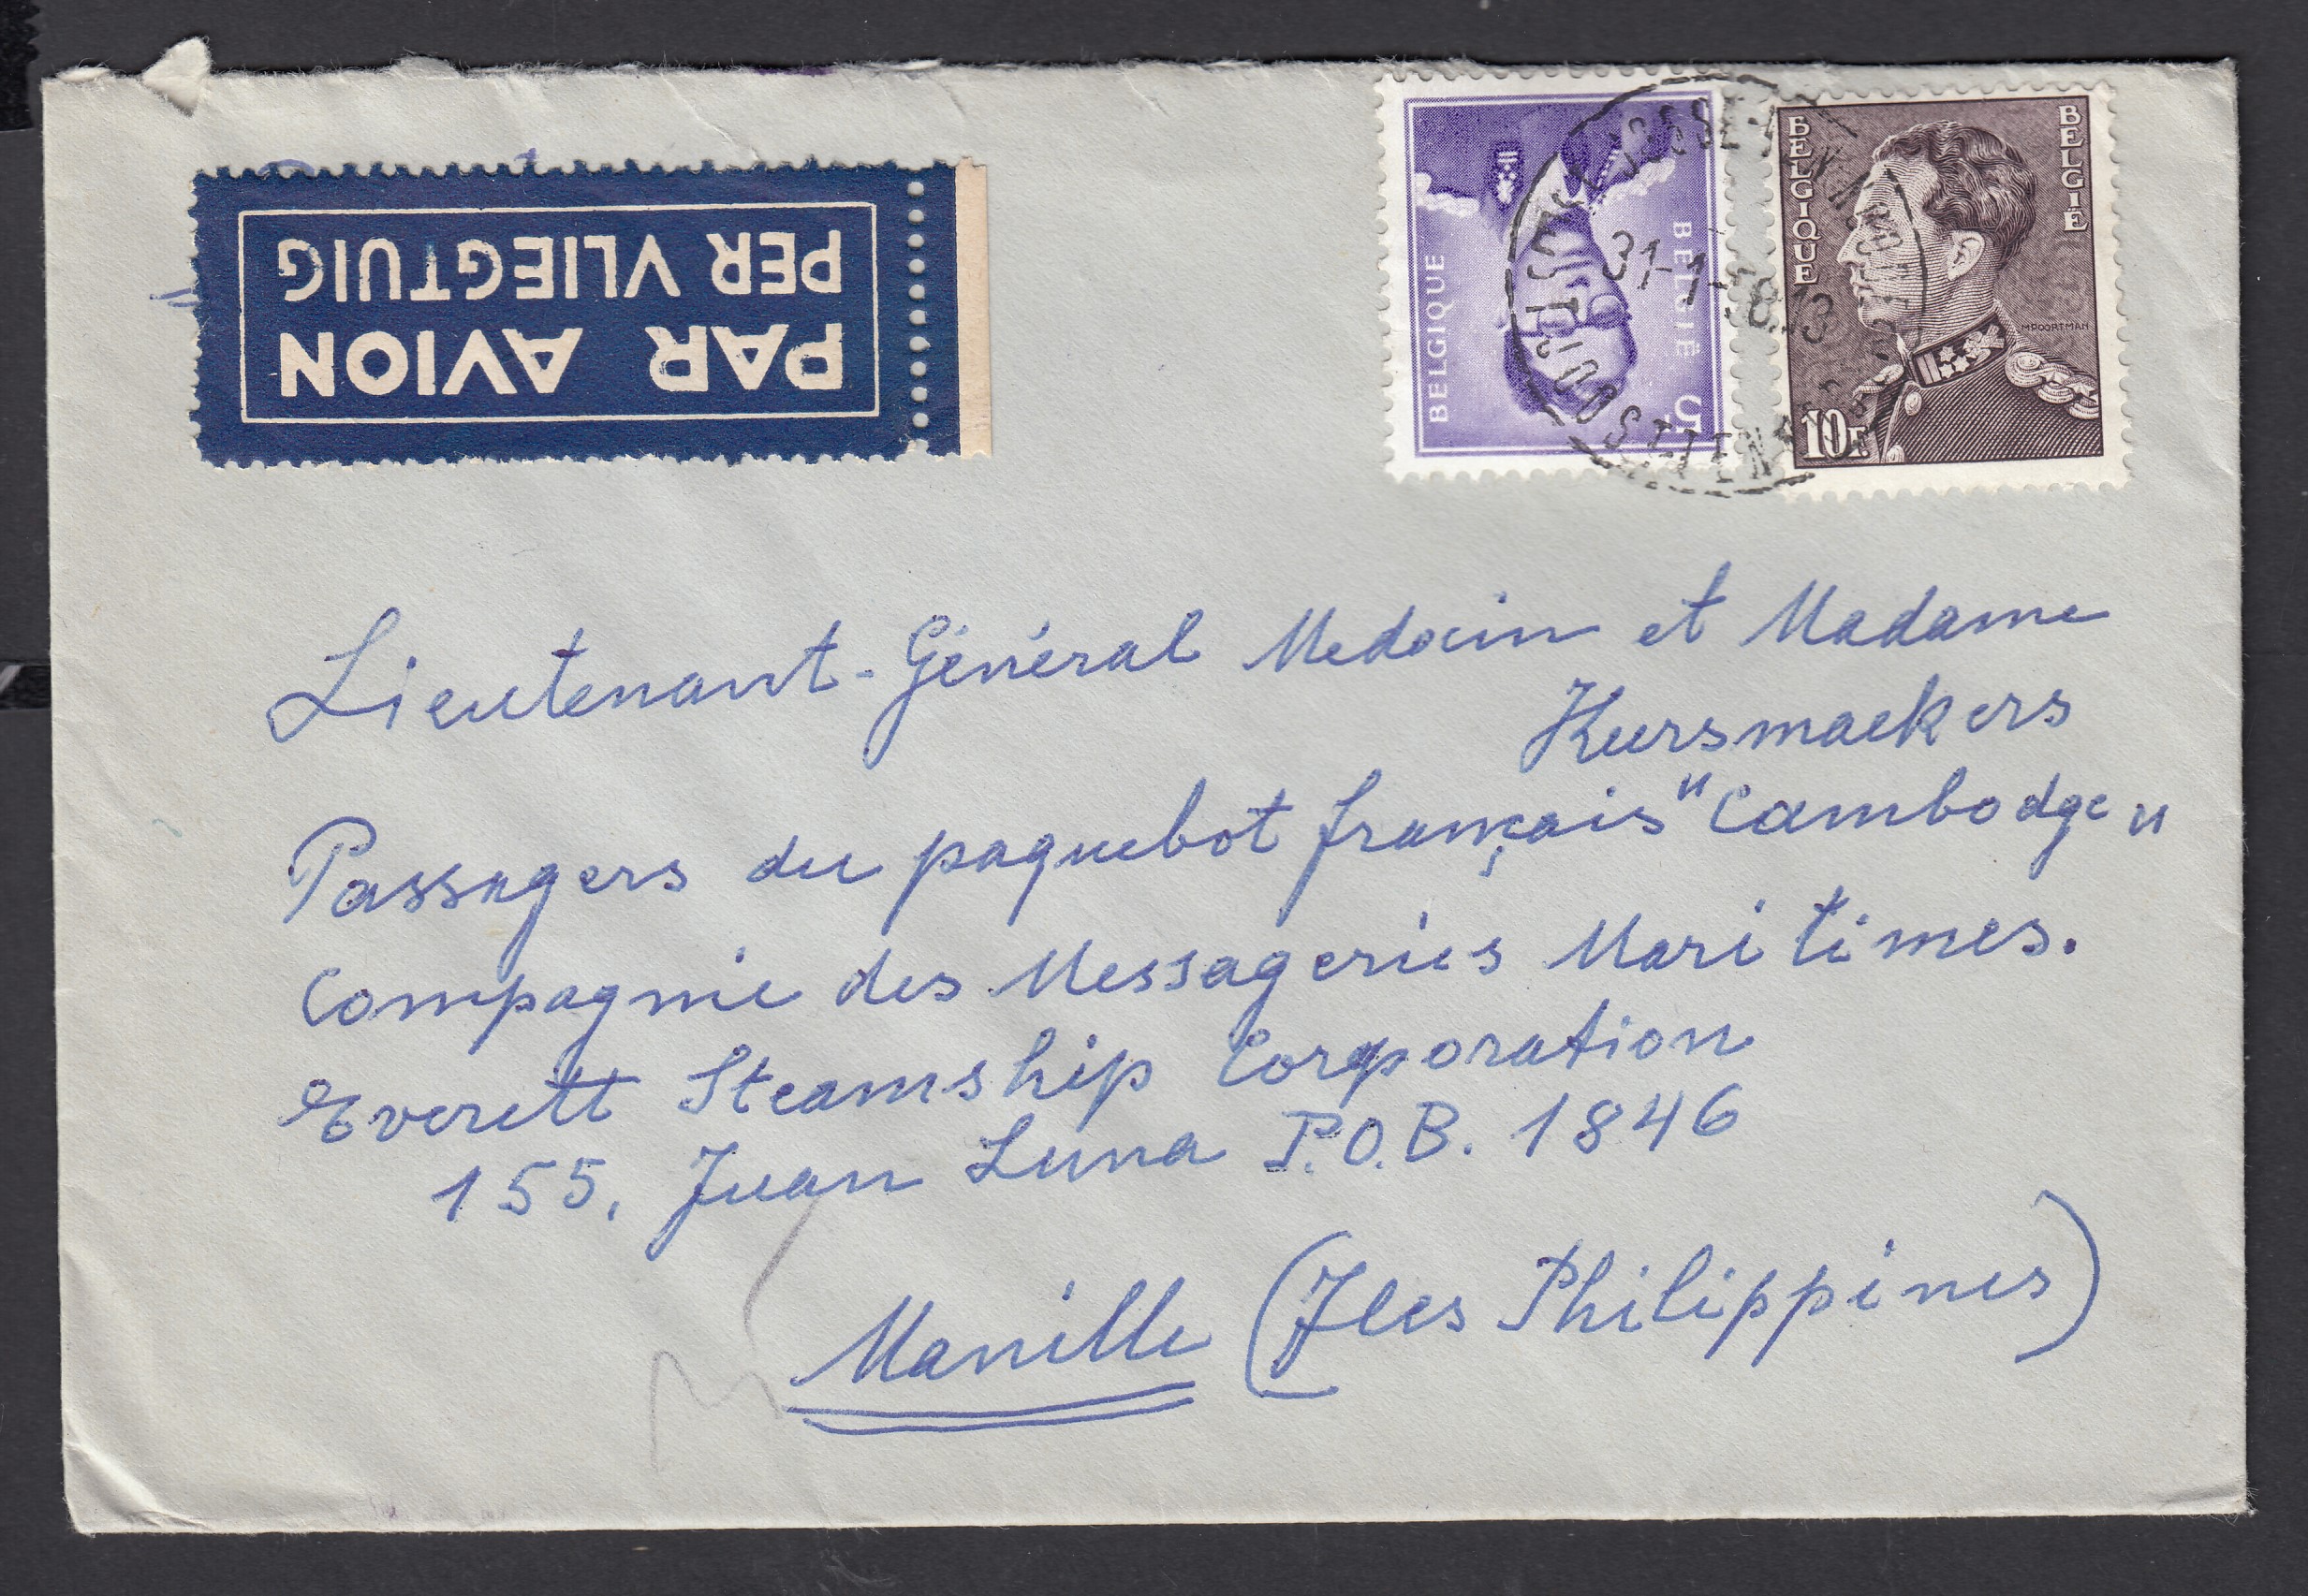 PAR AVION
PER VLIEGTUIG
BELGIQUE
BELGIË
5F
BELGIQUE
BELGIË
MPOORTMAN
10F
31-1-58.13
Lieutenant-Général Medecin et Madame
Kursmaekers
Passagers du paquebot français "Cambodge"
Compagnie des Messageries Maritimes.
Everett Steamship Corporation
155, Juan Luna P.O.B. 1846
Manille (Iles Philippines)